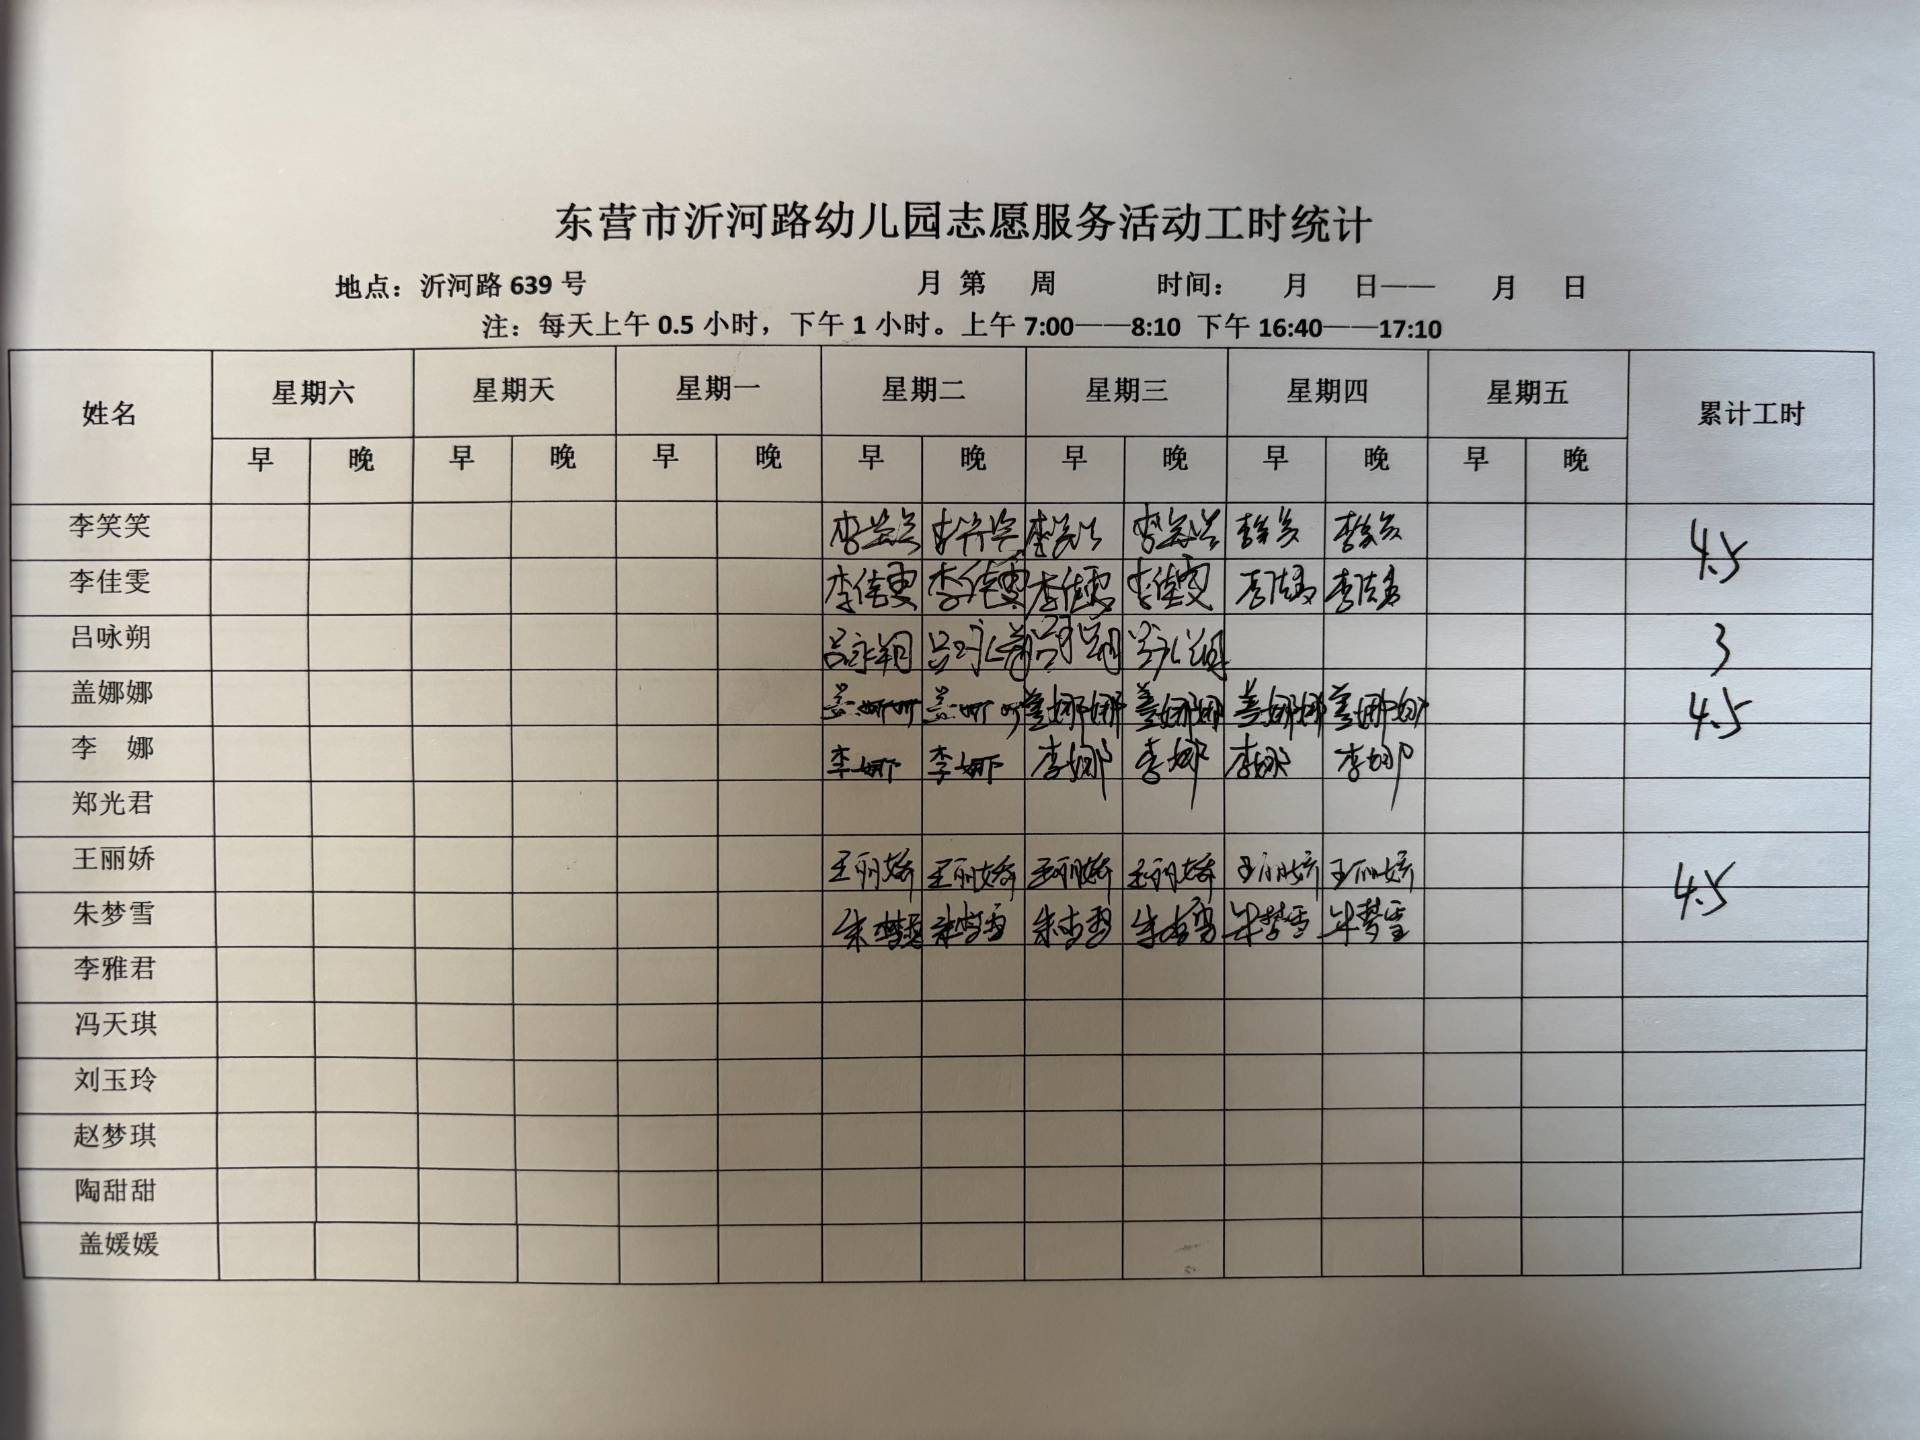 东营市沂河路幼儿园志愿服务活动工时统计
地点：沂河路 639 号 月 第 周 时间： 月 日—— 月 日
注：每天上午 0.5 小时，下午 1 小时。上午 7:00——8:10 下午 16:40——17:10
姓名 星期六 星期天 星期一 星期二 星期三 星期四 星期五 累计工时
早 晚 早 晚 早 晚 早 晚 早 晚 早 晚 早 晚
李笑笑 李笑笑 李笑笑 李笑笑 李笑笑 李笑笑 李笑笑 4.5
李佳雯 李佳雯 李佳雯 李佳雯 李佳雯 李佳雯 李佳雯
吕咏朔 吕咏朔 吕咏朔 吕咏朔 吕咏朔 3
盖娜娜 盖娜娜 盖娜娜 盖娜娜 盖娜娜 盖娜娜 盖娜娜 4.5
李 娜 李娜 李娜 李娜 李娜 李娜 李娜
郑光君
王丽娇 王丽娇 王丽娇 王丽娇 王丽娇 王丽娇 王丽娇 4.5
朱梦雪 朱梦雪 朱梦雪 朱梦雪 朱梦雪 朱梦雪 朱梦雪
李雅君
冯天琪
刘玉玲
赵梦琪
陶甜甜
盖媛媛